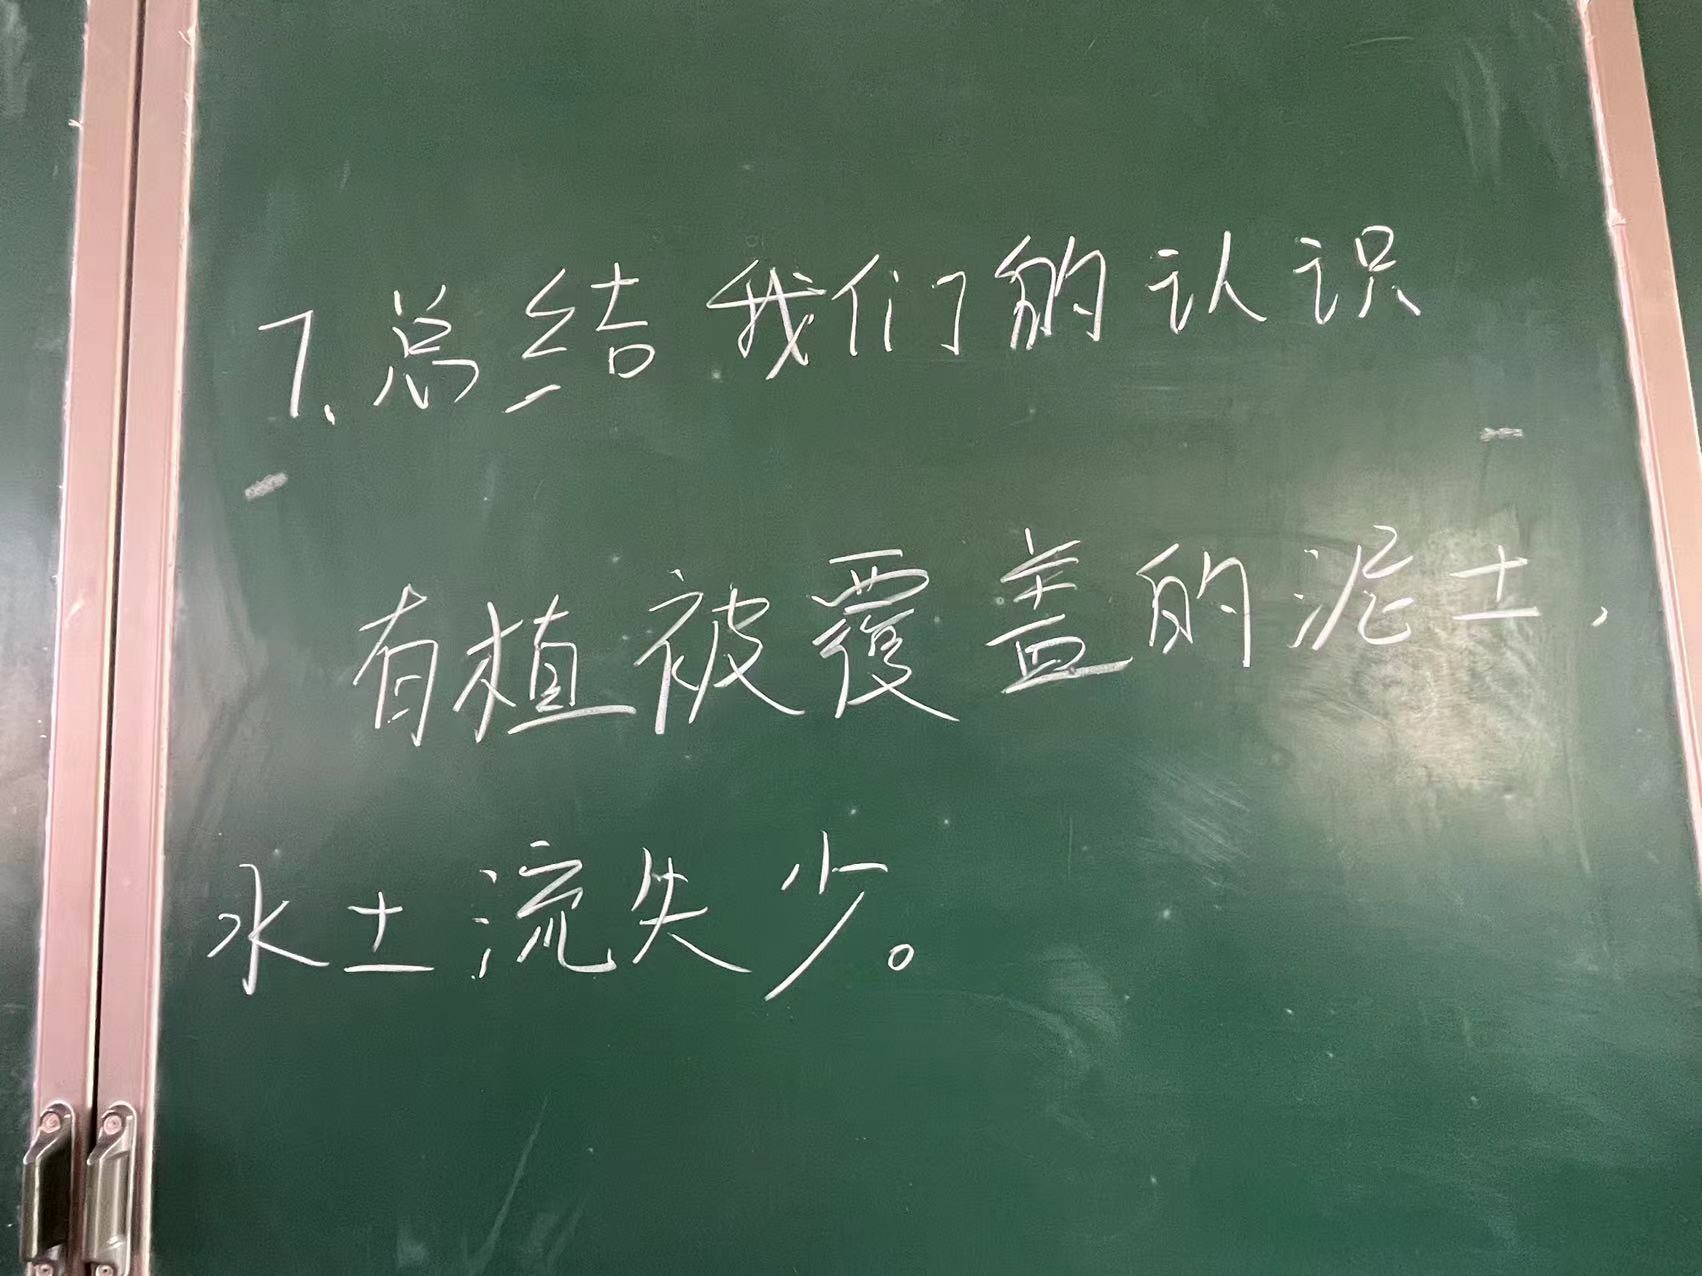 7、总结我们的认识
有植被覆盖的泥土，
水土流失少。